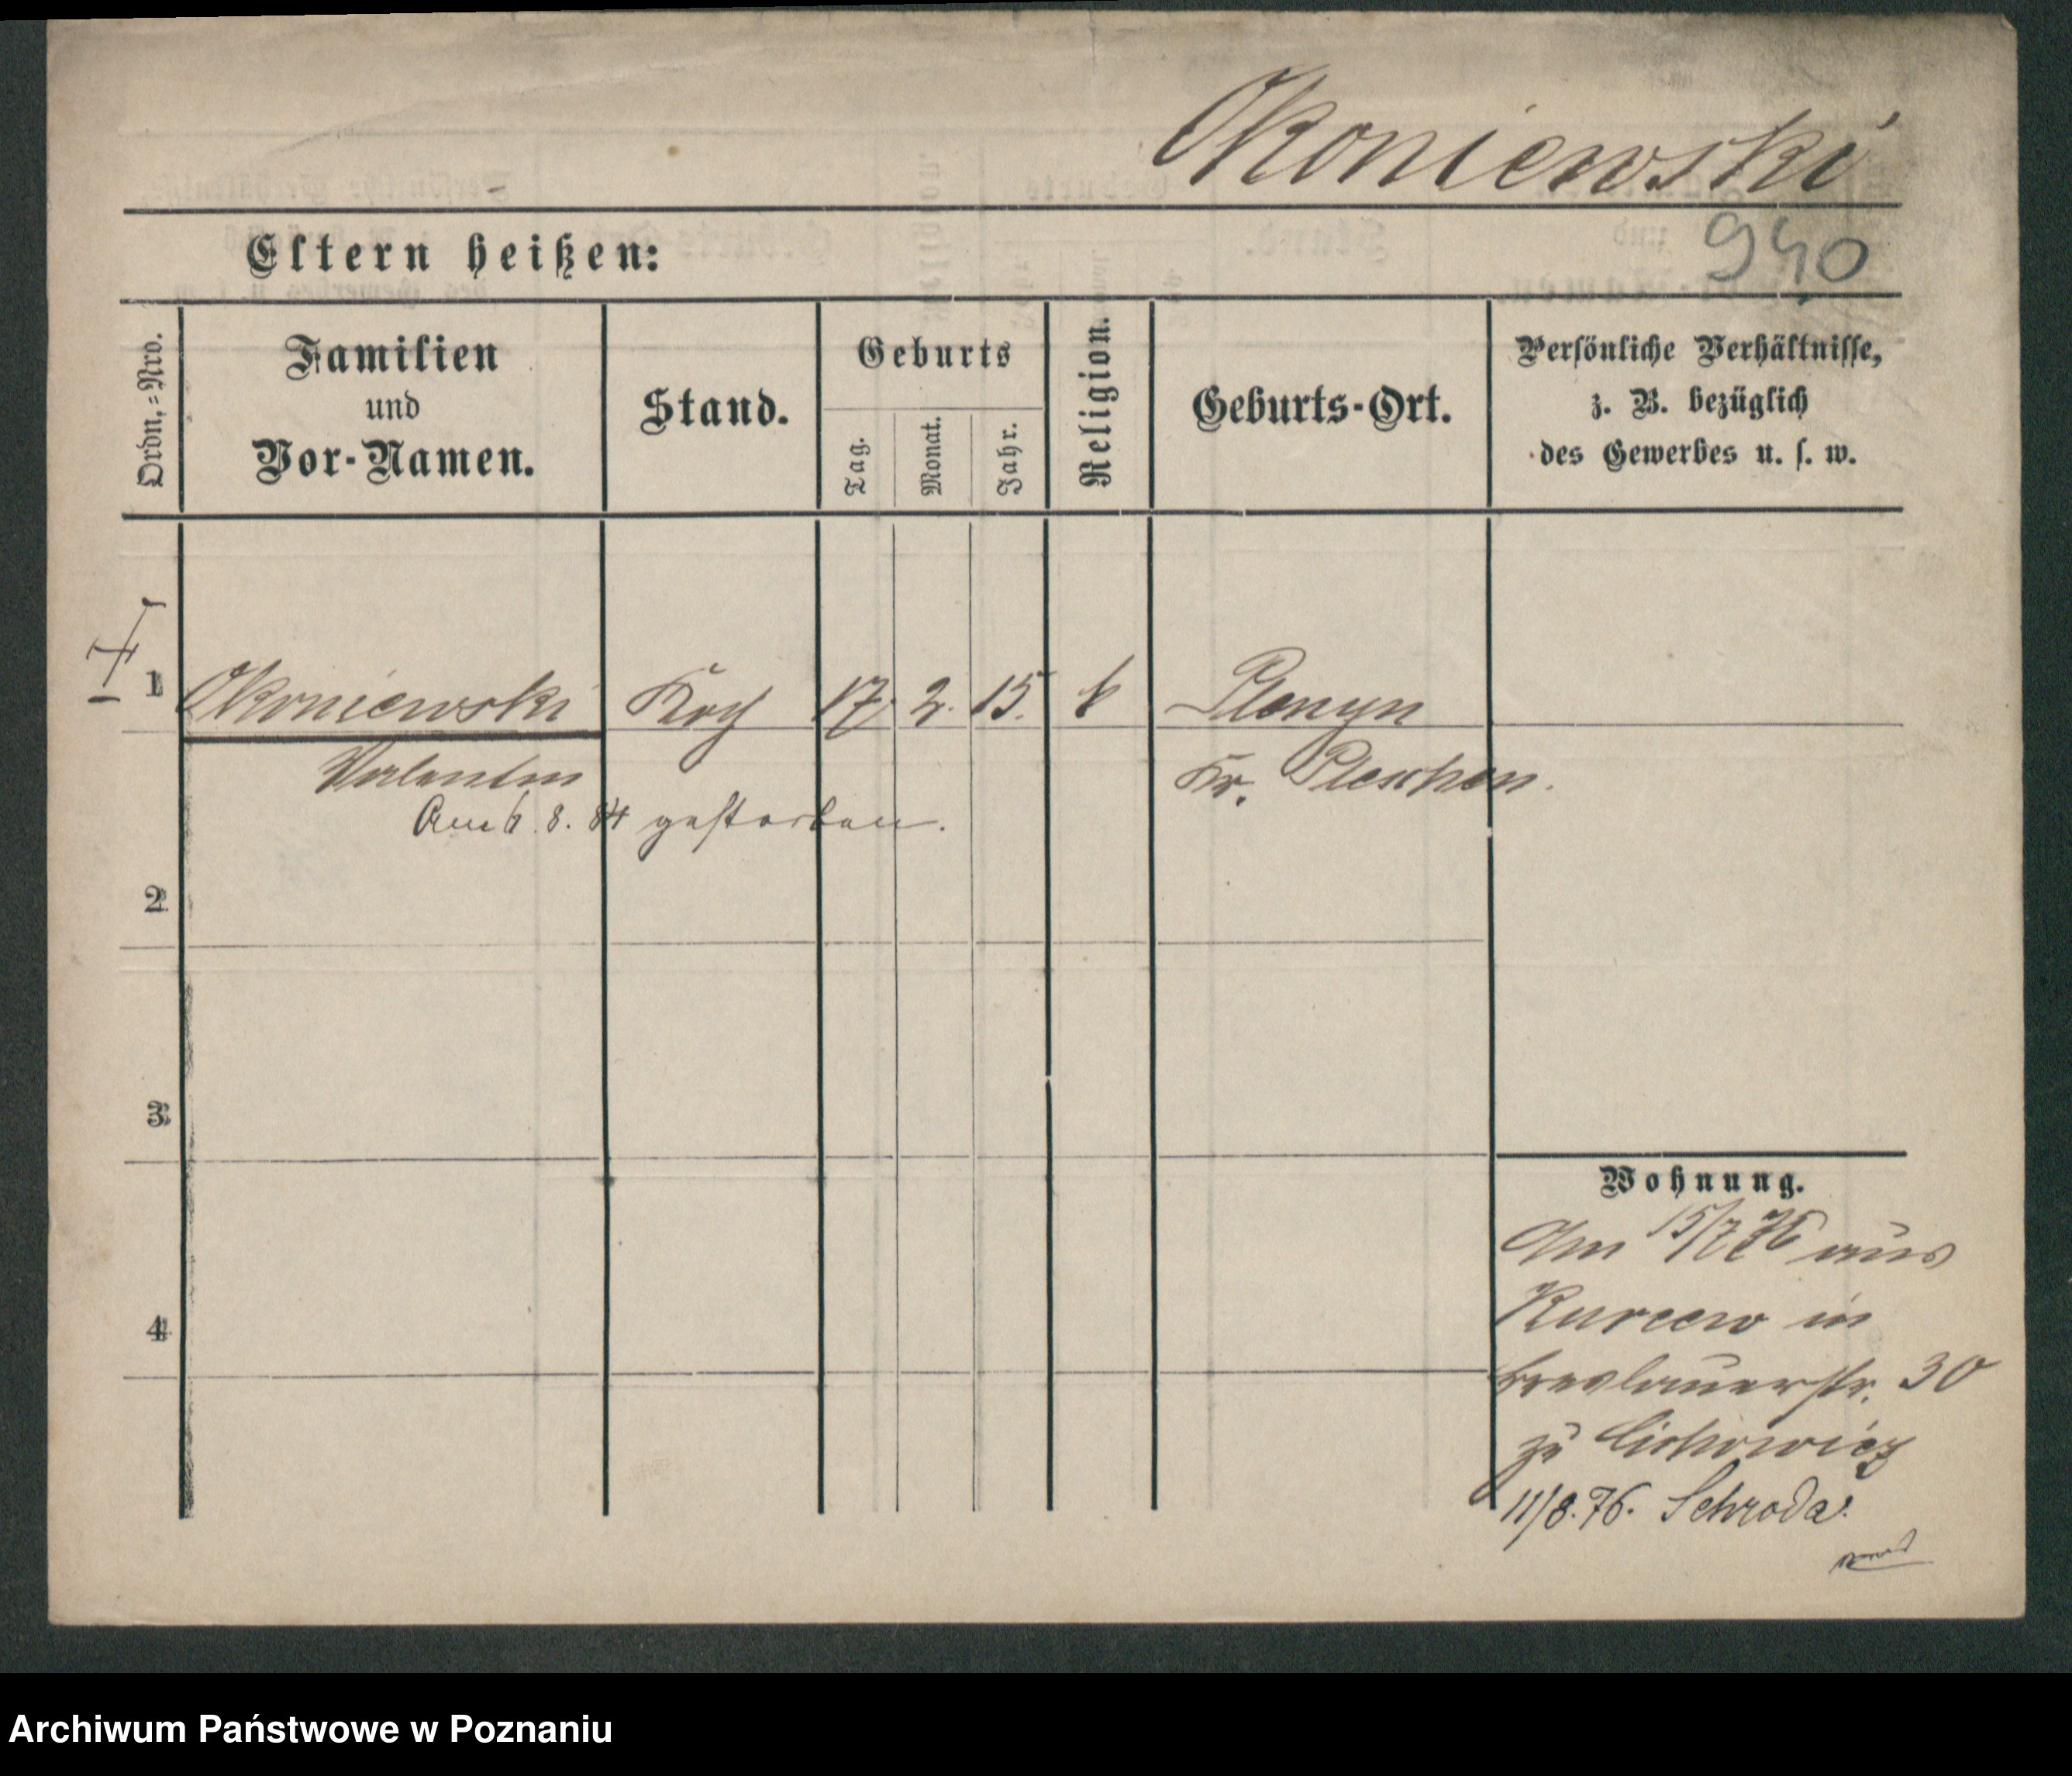 Okoniewski
940
Eltern heißen:
Ordn.=Nro.
Familien
und
Vor-Namen.
Stand.
Geburts
Tag.
Monat.
Jahr.
Religion.
Geburts-Ort.
Persönliche Verhältnisse,
z. B. bezüglich
des Gewerbes u. s. w.
1 Okoniewski Koch 17. 2. 15. k
Valentin Kr. Pleschen.
Am 6. 8. 84 gestorben.
2
3
4
Wohnung.
Am 15/7 76 aus
Kurcew in
Breslauerstr. 30
zu
11/8. 76. Schroda.
Archiwum Państwowe w Poznaniu